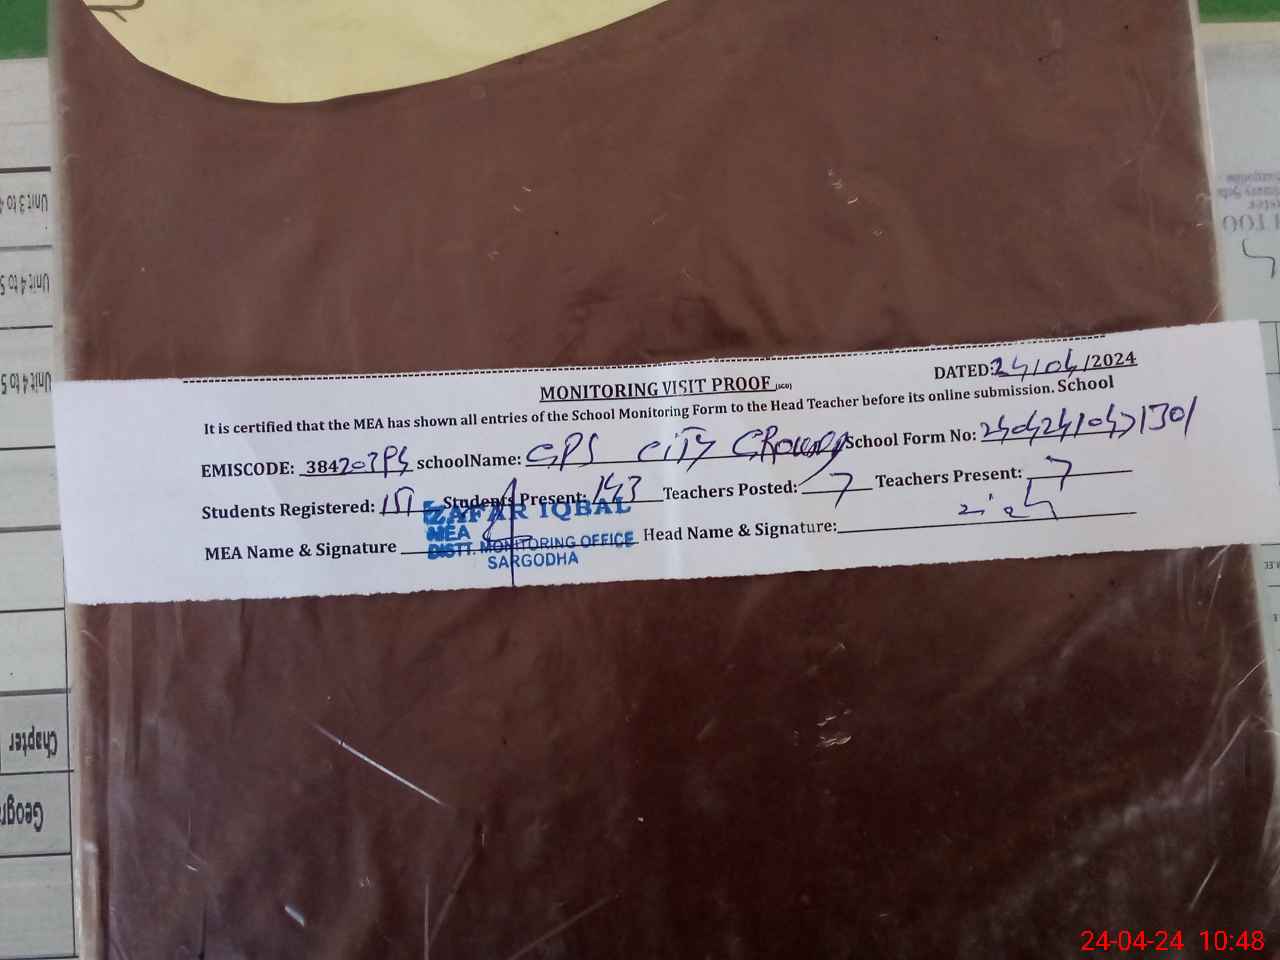 MONITORING VISIT PROOF
DATED: 24/04/2024
It is certified that the MEA has shown all entries of the School Monitoring Form to the Head Teacher before its online submission. School
EMISCODE: 384 schoolName: GPS CITY School Form No:
Students Registered: 151 Students Present: 143 Teachers Posted: 7 Teachers Present: 7
MEA Name & Signature Head Name & Signature:
ZAFAR IQBAL
MEA
DISTT. MONITORING OFFICE
SARGODHA
Unit 3 to
Unit 4 to 5
Unit 4 to 5
Chapter
24-04-24 10:48